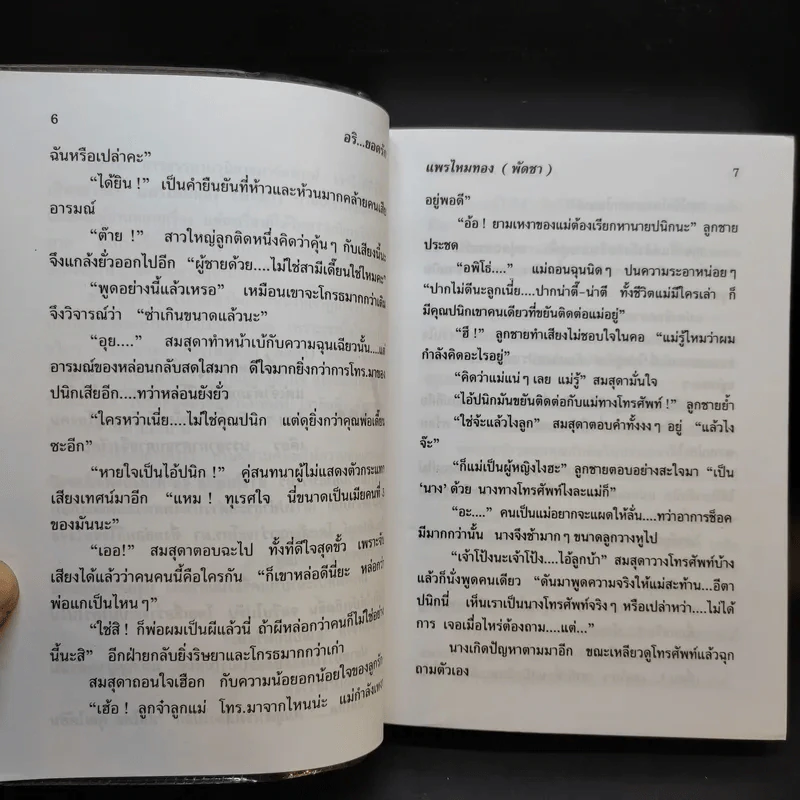 6
อริ...ยอดรัก
ฉันหรือเปล่าคะ”
“ได้ยิน !” เป็นคำยืนยันที่ห้าวและห้วนมากคล้ายคนเสีย
อารมณ์
“ต๊าย !” สาวใหญ่ลูกติดหนึ่งคิดว่าคุ้นๆ กับเสียงนี้นะ
จึงแกล้งยั่วออกไปอีก “ผู้ชายด้วย....ไม่ใช่สามีเดี๊ยนใช่ไหมคะ”
“พูดอย่างนี้แล้วเหรอ” เหมือนเขาจะโกรธมากกว่าเดิม
จึงวิจารณ์ว่า “ซ่าเกินขนาดแล้วนะ”
“อุย....” สมสุดาทำหน้าเบ้กับความฉุนเฉียวนั้น....แต่
อารมณ์ของหล่อนกลับสดใสมาก ดีใจมากยิ่งกว่าการโทร.มาของ
ปนิกเสียอีก....ทว่าหล่อนยังยั่ว
“ใครหว่าเนี่ย....ไม่ใช่คุณปนิก แต่ดุยิ่งกว่าคุณพ่อเดี๊ยน
ซะอีก”
“หายใจเป็นไอ้ปนิก !” คู่สนทนาผู้ไม่แสดงตัวกระแทก
เสียงเทศน์มาอีก “แหม ! ทุเรศใจ นี่ขนาดเป็นเมียคนที่ 3
ของมันนะ”
“เออ!” สมสุดาตอบฉะไป ทั้งที่ดีใจสุดขั้ว เพราะจับ
เสียงได้แล้วว่าคนคนนี้คือใครกัน “ก็เขาหล่อดีนี่ยะ หล่อกว่า
พ่อแกเป็นไหนๆ”
“ใช่สิ ! ก็พ่อผมเป็นผีแล้วนี่ ถ้าผีหล่อกว่าคนก็ไม่ใช่อย่าง
นี้นะสิ” อีกฝ่ายกลับยิ่งริษยาและโกรธมากกว่าเก่า
สมสุดาถอนใจเฮือก กับความน้อยอกน้อยใจของลูกรัก
“เฮ้อ ! ลูกจ๋าลูกแม่ โทร.มาจากไหนน่ะ แม่กำลังเหงา
แพรไหมทอง ( พัดชา )
7
อยู่พอดี”
“อ้อ ! ยามเหงาของแม่ต้องเรียกหานายปนิกนะ” ลูกชาย
ประชด
“อพิโธ่....” แม่ถอนฉุนนิดๆ ปนความระอาหน่อยๆ
“ปากไม่ดีนะลูกเนี่ย....ปากน่าตี๊-น่าตี ทั้งชีวิตแม่มีใครเล่า ก็
มีคุณปนิกเขาคนเดียวที่ขยันติดต่อแม่อยู่”
“ฮึ !” ลูกชายทำเสียงไม่ชอบใจในคอ “แม่รู้ไหมว่าผม
กำลังคิดอะไรอยู่”
“คิดว่าแม่แน่ๆ เลย แม่รู้” สมสุดามั่นใจ
“ไอ้ปนิกมันขยันติดต่อกับแม่ทางโทรศัพท์ !” ลูกชายย้ำ
“ใช่จ้ะแล้วไงลูก” สมสุดาตอบคำทั้งงงๆ อยู่ “แล้วไง
จ๊ะ”
“ก็แม่เป็นผู้หญิงไงฮะ” ลูกชายตอบอย่างสะใจมา “เป็น
‘นาง’ ด้วย นางทางโทรศัพท์ไงละแม่ก็”
“อะ....” คนเป็นแม่อยากจะแผดให้ลั่น....ทว่าอาการช็อค
มีมากกว่านั้น นางจึงช้ามากๆ ขนาดลูกวางหูไป
“เจ้าโป้งนะเจ้าโป้ง....ไอ้ลูกบ้า” สมสุดาวางโทรศัพท์บ้าง
แล้วก็นั่งพูดคนเดียว “ดันมาพูดความจริงให้แม่สะท้าน...อีตา
ปนิกนี่ เห็นเราเป็นนางโทรศัพท์จริงๆ หรือเปล่าหว่า....ไม่ได้
การ เจอเมื่อไหร่ต้องถาม....แต่...”
นางเกิดปัญหาตามมาอีก ขณะเหลียวดูโทรศัพท์แล้วฉุก
ถามตัวเอง